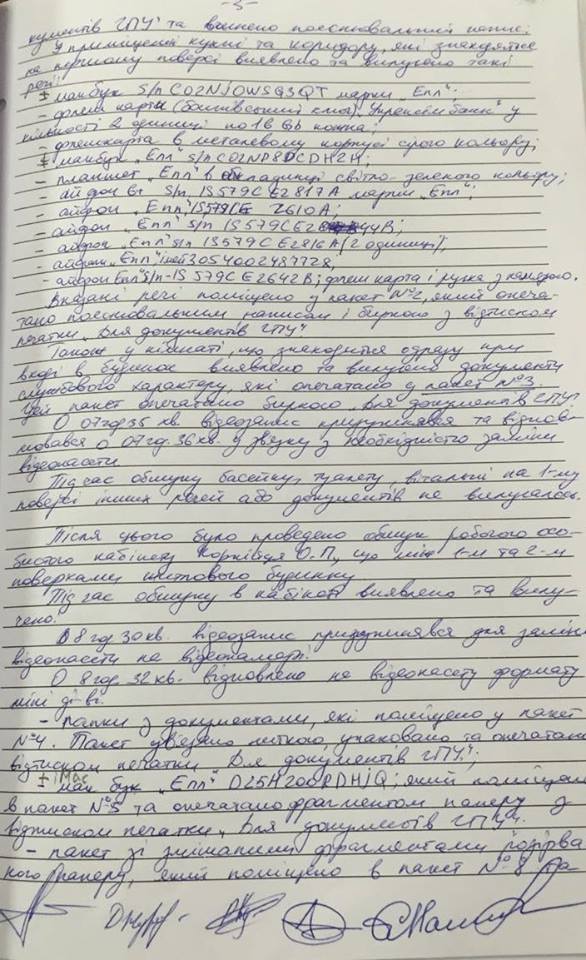 - 5 -
кументів ГПУ" та вчинено пояснювальний напис.
У приміщенні кухні та коридору, які знаходяться
на першому поверсі виявлено та вилучено такі
речі:
± макбук s/n C02NJ0WSG3QT марки „Епл".
- флеш карти (банківський ключ) „Укрексімбанк" у
кількості 2 одиниці по 16 Gb кожна;
- флешкарта в металевому корпусі сірого кольору;
± макбук „Епл s/n C02NP8DCDH2H;
- планшет „Епл" в обкладинці світло-зеленого кольору;
- айфон 6s s/n IS579CE2817A марки „Епл";
- айфон „Епл" IS579CE 2610A;
- айфон „Епл" s/n IS579CE26 44B;
- айфон „Епл" s/n IS579CE2816A (2 одиниці);
- айфон „Епл" імей 3054002487728;
- айфон Епл" s/n-IS579CE2642B; флеш карта і ручка з камерою.
Вказані речі поміщено у пакет №2, який опеча-
тано пояснювальним написом і биркою з відтиском
печатки „Для документів ГПУ".
Також у кімнаті, що знаходиться одразу при
вході в будинок виявлено та вилучено документи
службового характеру, які опечатано у пакет №3.
Цей пакет опечатано биркою „Для документів ГПУ"
О 07 год 35 хв. відеозапис призупинявся та віднов-
лювався о 07 год. 36 хв. у звязку з необхідністю заміни
відеокасети.
Під час обшуку басейну, туалету, вітальні на 1-му
поверсі інших речей або документів не вилучалось.
Після цього було проведено обшук робочого осо-
бистого кабінету Корнійця О.П, що між 1-м та 2-м
поверхами житлового будинку
Під час обшуку в кабінеті виявлено та вилу-
чено.
О 8 год 30 хв. відеозапис призупинявся для заміни
відеокасети на відеокамері.
О 8 год. 32 хв. відновлено на відеокасету формату
міні ді-ві.
- папки з документами, які поміщено у пакет
№4. Пакет увязано ниткою, упаковано та опечатано
відтиском печатки Для документів ГПУ";
± iMac
мак бук „Епл" D25H200PDHJQ; який поміщено
в пакет №5 та опечатано фрагментом паперу з
відтиском печатки „Для документів ГПУ".
- пакет зі зміненими фрагментами розірва-
ного паперу, який поміщено в пакет №8 та